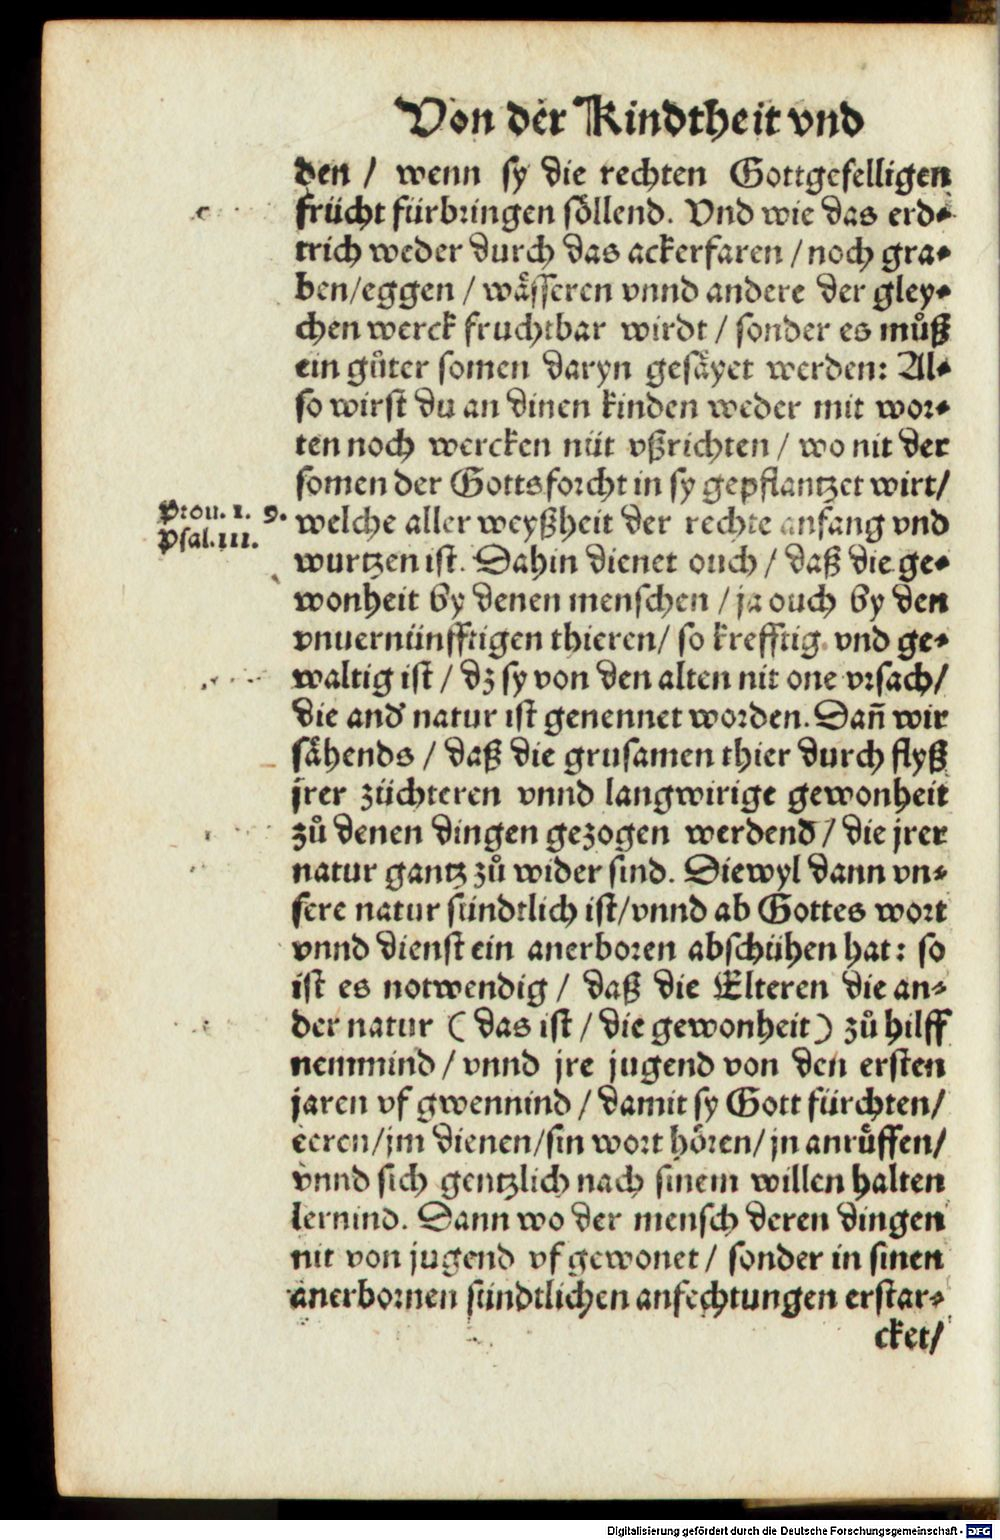 Von der Kindtheit vnd
den / wenn sy die rechten Gottgefelligen
frücht fürbringen söllend. Vnd wie das erd⸗
trich weder durch das ackerfaren / noch gra⸗
ben/eggen / wåsseren vnnd andere der gley⸗
chen werck fruchtbar wirdt / sonder es můß
ein gůter somen daryn gesåyet werden: Al⸗
so wirst du an dinen kinden weder mit wor⸗
ten noch wercken nüt vßrichten / wo nit der
somen der Gottsforcht in sy gepflantzet wirt/
Prou. 1. 9.
Psal. 111.
welche aller weyßheit der rechte anfang vnd
wurtzen ist. Dahin dienet ouch / daß die ge⸗
wonheit by denen menschen / ja ouch by den
vnuernünfftigen thieren/ so krefftig vnd ge⸗
waltig ist / dz sy von den alten nit one vrsach/
die and' natur ist genennet worden. Dañ wir
såhends / daß die grusamen thier durch flyß
jrer züchteren vnnd langwirige gewonheit
zů denen dingen gezogen werdend / die jrer
natur gantz zů wider sind. Diewyl dann vn⸗
sere natur sündtlich ist/vnnd ab Gottes wort
vnnd dienst ein anerboren abschühen hat: so
ist es notwendig / daß die Elteren die an⸗
der natur (das ist / die gewonheit) zů hilff
nemmind / vnnd jre jugend von den ersten
jaren vf gwennind / damit sy Gott fürchten/
eeren/jm dienen/sin wort hören/ jn anrůffen/
vnnd sich gentzlich nach sinem willen halten
lernind. Dann wo der mensch deren dingen
nit von jugend vf gewonet / sonder in sinen
anerbornen sündtlichen anfechtungen erstar⸗
cket/
Digitalisierung gefördert durch die Deutsche Forschungsgemeinschaft - DFG